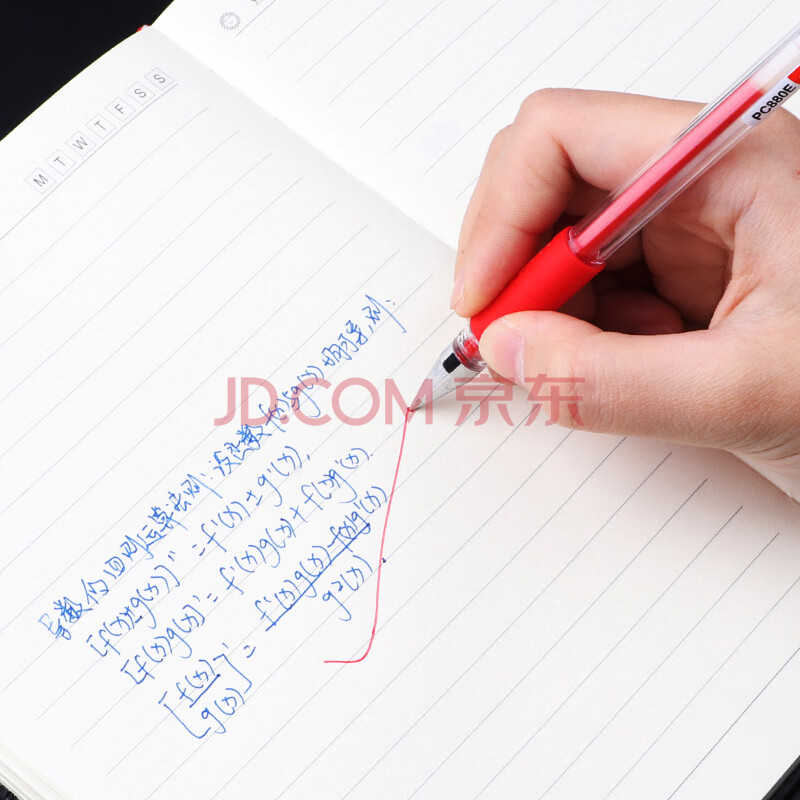 M T W T F S S
PC880E
JD.COM 京东
导数的四则运算法则:设函数f(x)与g(x)均可导,则:
[f(x)±g(x)]' = f'(x)±g'(x),
[f(x)g(x)]' = f'(x)g(x)+f(x)g'(x).
[f(x)/g(x)]' = f'(x)g(x)-f(x)g'(x)/g²(x)